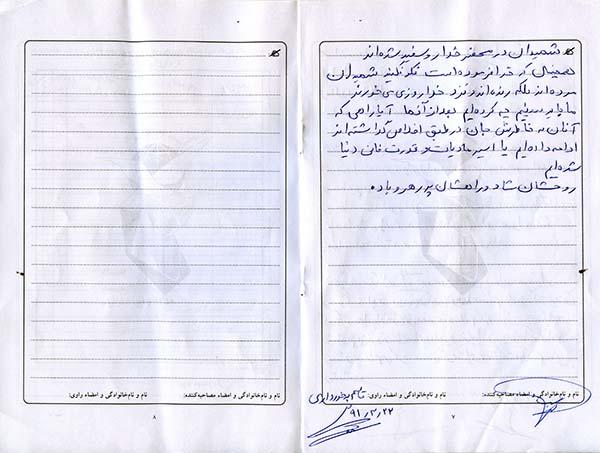 شهیدان در محضر خدا رو سفید شده اند
همچنان که قرآن فرموده است فکر نکنید شهیدان
مرده اند بلکه زنده اند و نزد خدا روزی می خورند
ما باید ببینیم چه کرده ایم بعد از آنها آیا راهی که
آنان به خاطرش جان در طبق اخلاص گذاشته اند
ادامه داده ایم یا اسیر مادیات و قدرت فانی دنیا
شده ایم
روحشان شاد و راهشان پر رهرو باد
نام و نام‌خانوادگی و امضاء مصاحبه‌کننده: نام و نام‌خانوادگی و امضاء راوی: قاسم
۹۱٫۳٫۲۲
۷
نام و نام‌خانوادگی و امضاء مصاحبه‌کننده: نام و نام‌خانوادگی و امضاء راوی:
۸